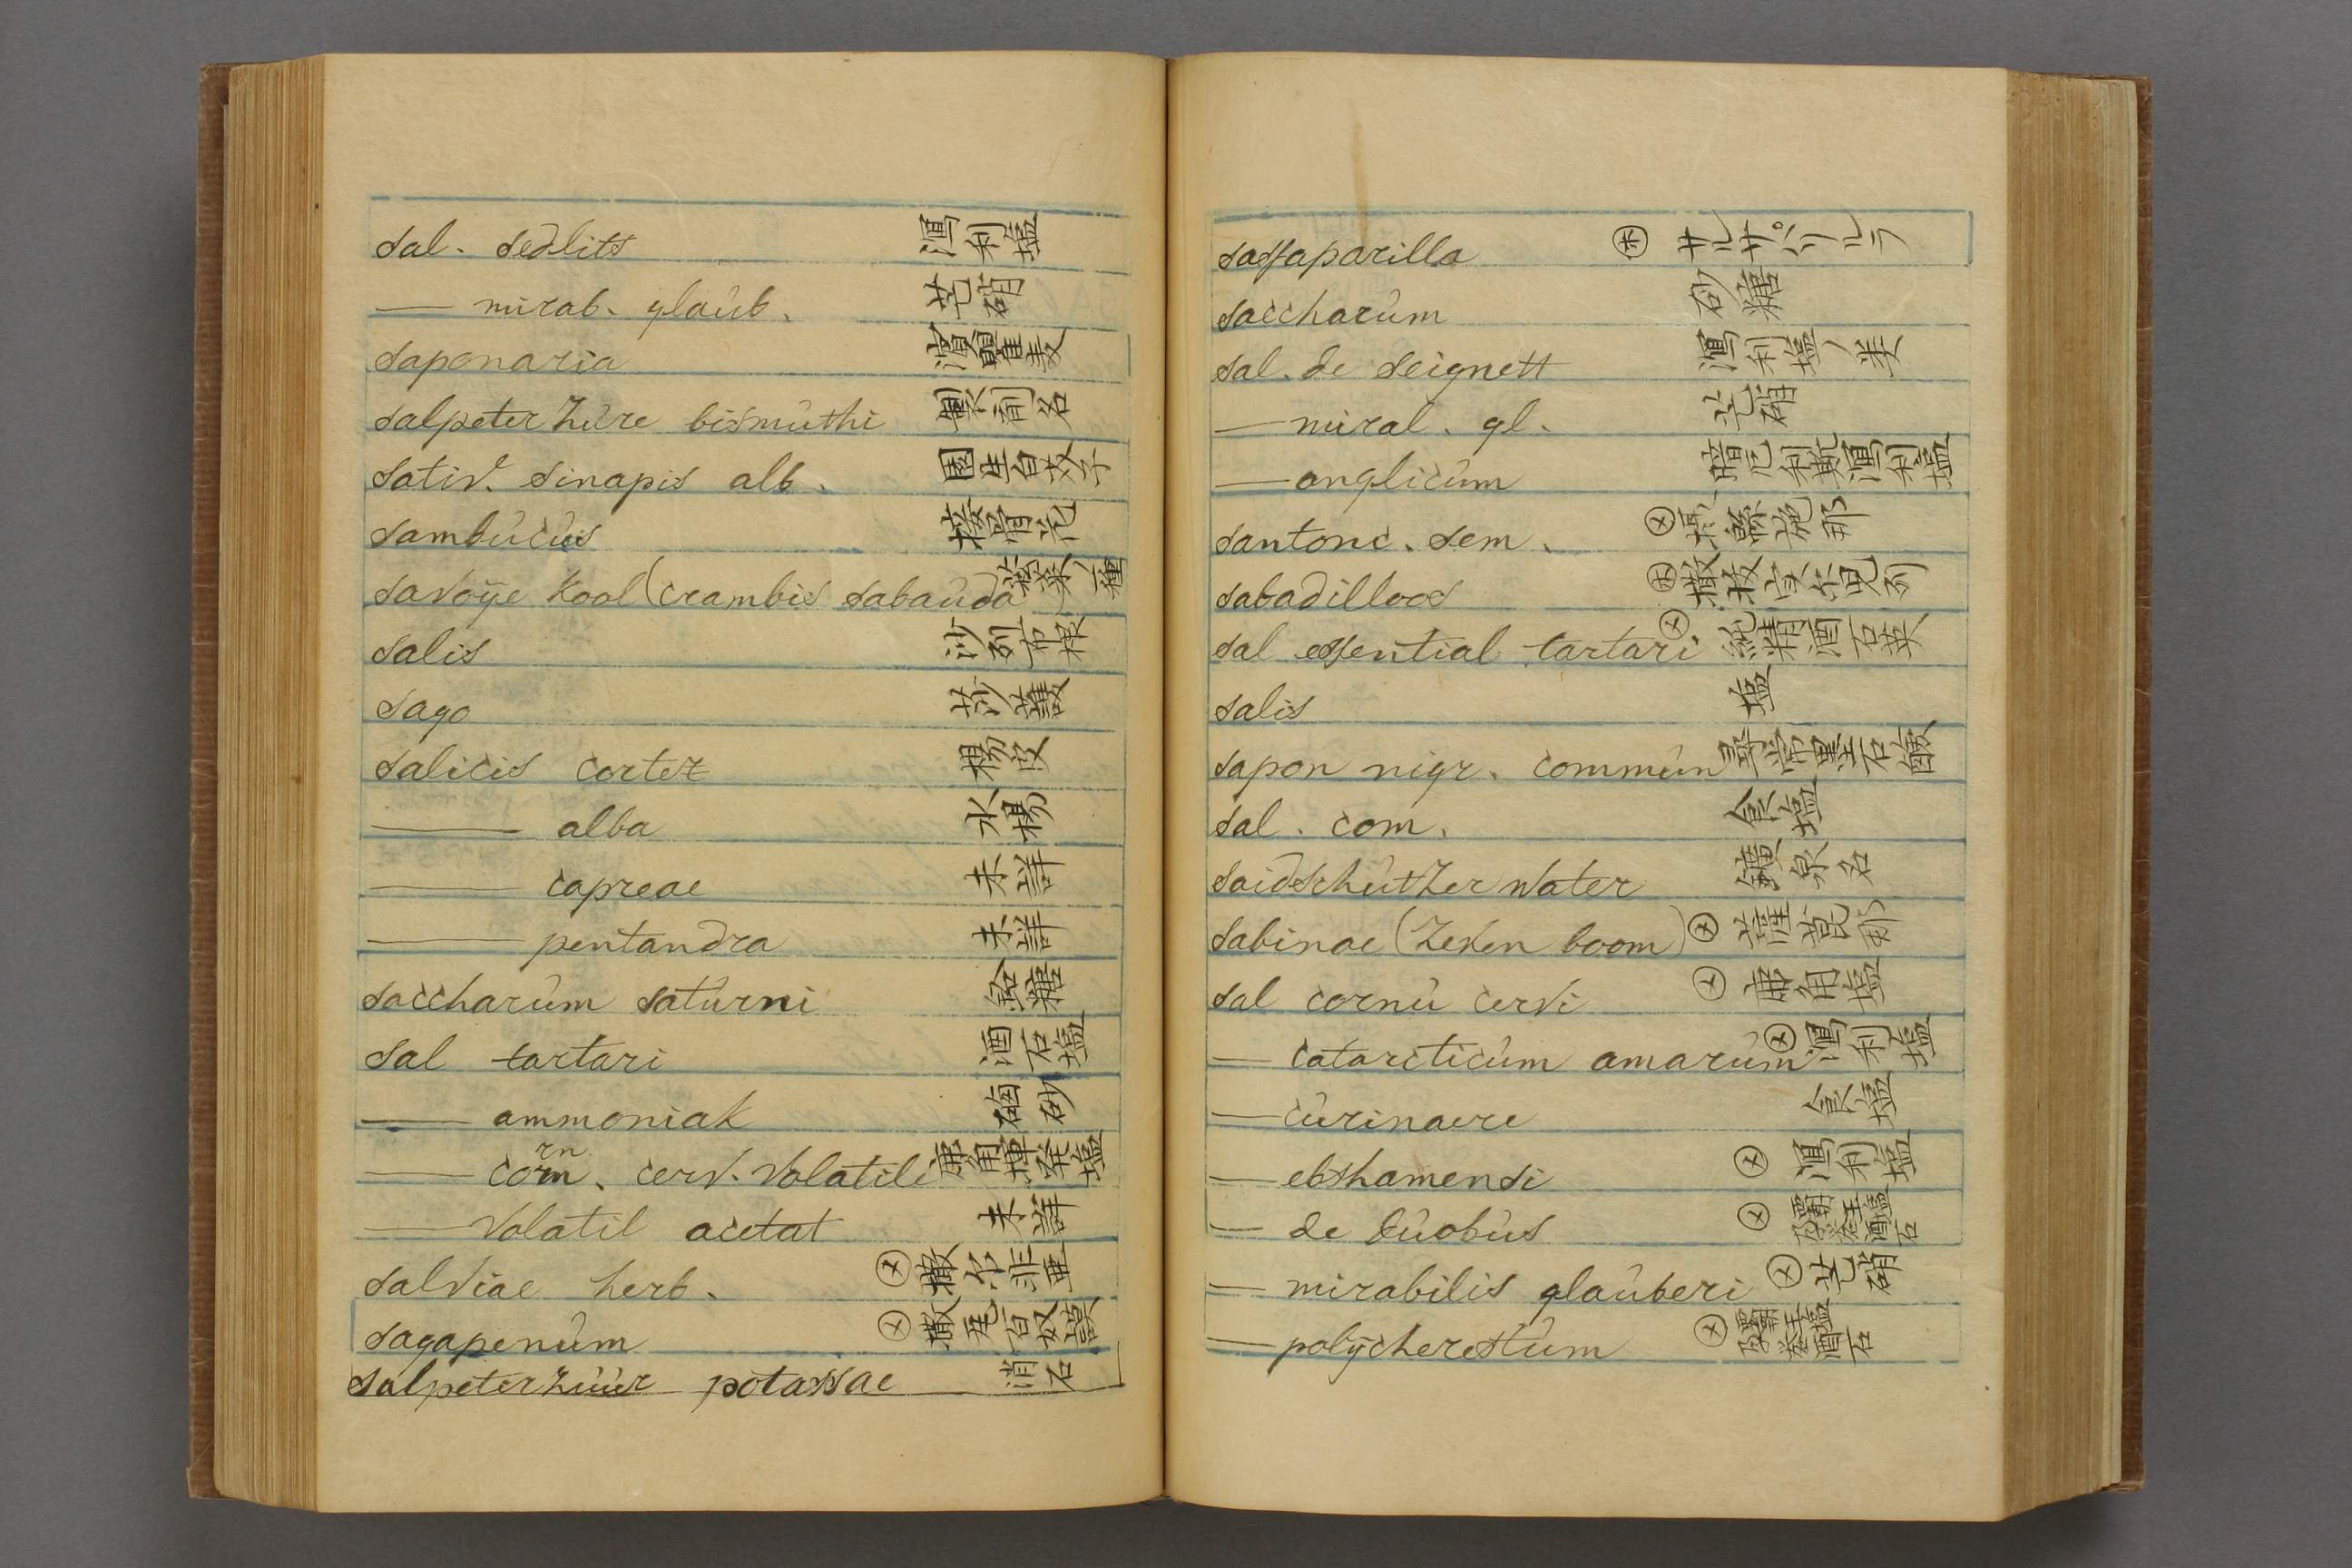 sal. sedlits 瀉利塩
— mirab. glaub. 芒硝
saponaria
salpeterzure bismuthi 製剤名
sativ. sinapis alb. 園生白芥子
sambucus 接骨花
savoÿe kool (crambis sabauda) 菘菜ノ一種
salis 沙列布根
sago 莎護
salicis cortex 楊皮
— alba 水楊
— capreae 未詳
— pentandra 未詳
saccharum saturni 鉛糖
sal tartari 酒石塩
— ammoniak 硇砂
— corn. cerv. volatile 鹿角揮発塩
— volatil acetat 未詳
salviae herb. ㋱ 撒尔非亜
sagapenum ㋱
salpeterzuur potassae 消石
sassaparilla ㋭ サルサパリルラ
saccharum 砂糖
sal. de seignett 瀉利塩ノ类
— miral. gl. 芒硝
— anglicum 暗厄利斯瀉利塩
santonc. sem. ㋱
sabadilloos
sal essential tartari ㋱ 純精酒石英
salis 塩
sapon nigr. commun 尋常黒石鹸
sal. com. 食塩
saidschutzer water 鑛泉名
sabinae (zeven boom) ㋱
sal cornu cervi ㋱ 鹿角塩
— catarcticum amarum ㋱ 瀉利塩
— curinaere 食塩
— ebshamensi ㋱ 瀉利塩
— de duobus ㋱
— mirabilis glauberi ㋱ 芒硝
— polÿcherestum ㋱